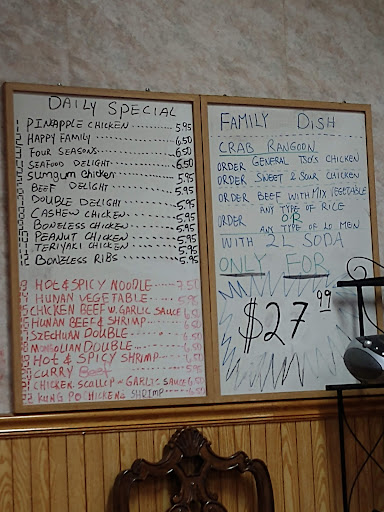 DAILY SPECIAL
PINAPPLE CHICKEN ---------- 5.95
HAPPY FAMILY ---------- 6.50
FOUR SEASONS ---------- 6.50
SEAFOOD DELIGHT ---------- 6.50
Sumgum chicken ---------- 5.95
BEEF DELIGHT ---------- 5.95
DOUBLE DELIGHT ---------- 5.95
CASHEW CHICKEN ---------- 5.95
BONELESS CHICKEN ---------- 5.95
PEANUT CHICKEN ---------- 5.95
TERIYAKI CHICKEN ---------- 5.95
BONELESS RIBS ---------- 5.95
HOT & SPICY NOODLE ----- 7.50
HUNAN VEGETABLE ----- 5.95
CHICKEN BEEF W. GARLIC SAUCE
HUNAN BEEF & SHRIMP
SZECHUAN DOUBLE
MONGOLIAN DOUBLE
HOT & SPICY SHRIMP
CURRY Beef ----- 5.95
CHICKEN. SCOLLOP W GARLIC SAUCE 6.50
KUNG PO CHICKEN & SHRIMP
FAMILY DISH
CRAB RANGOON
ORDER GENERAL TSO'S CHICKEN
ORDER SWEET & SOUR CHICKEN
ORDER BEEF WITH MIX VEGETABLE
ANY TYPE OF RICE
ORDER OR
ANY TYPE OF LO MEN
WITH 2L SODA
ONLY FOR
$27.99